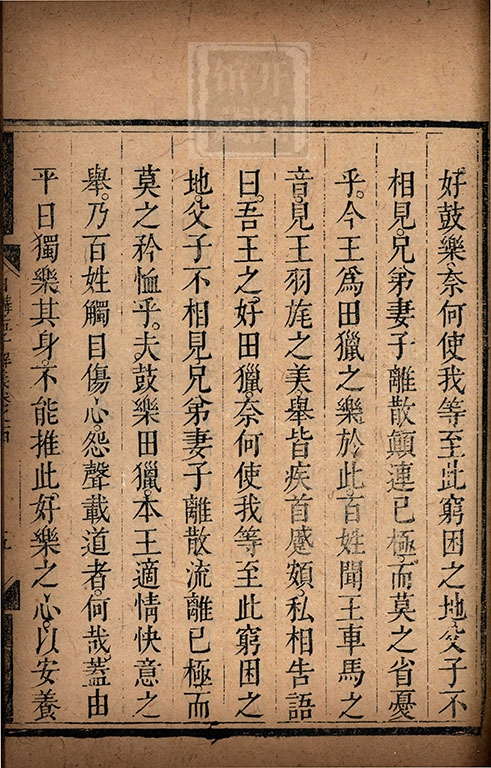 好鼓樂奈何使我等至此窮困之地父子不
相見兄弟妻子離散顛連已極而莫之省憂
乎今王爲田獵之樂於此百姓聞王車馬之
音見王羽旄之美舉皆疾首蹙頞私相告語
曰吾王之好田獵奈何使我等至此窮困之
地父子不相見兄弟妻子離散流離已極而
莫之矜恤乎夫鼓樂田獵本王適情快意之
舉乃百姓觸目傷心怨聲載道者何哉蓋由
平日獨樂其身不能推此好樂之心以安養